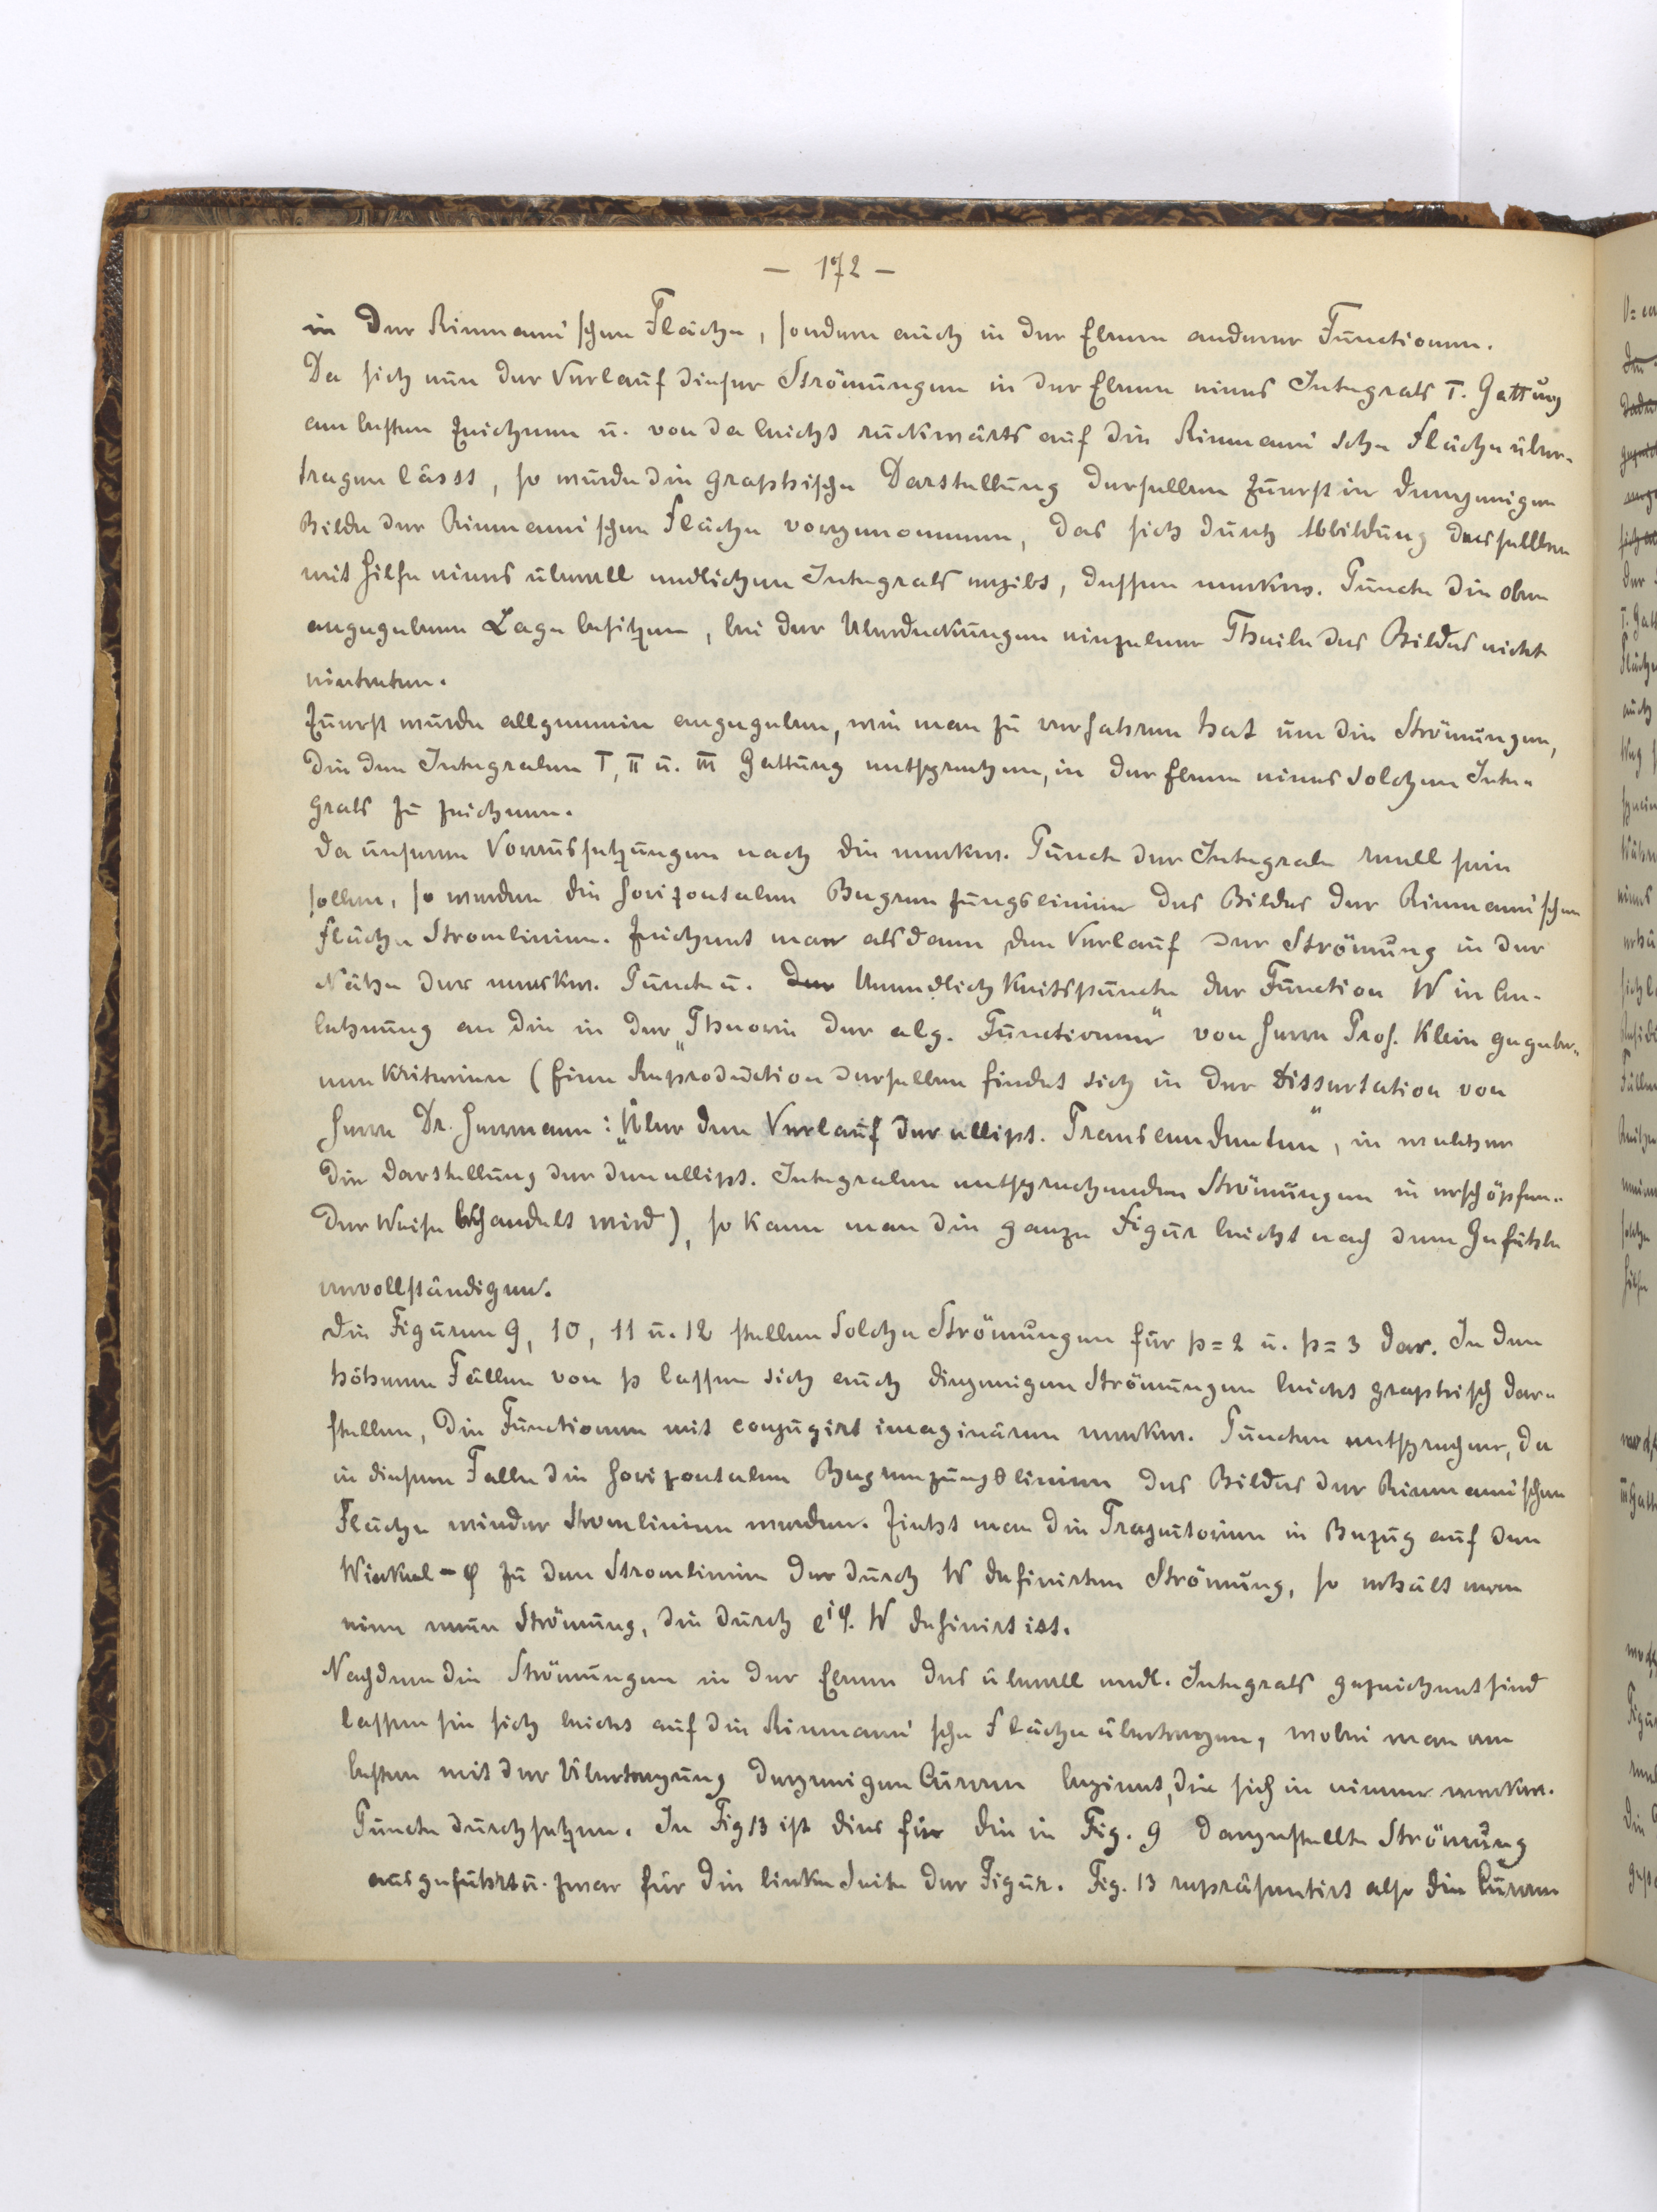 — 172 —
in der Riemann'schen Fläche, sondern auch in der Ebene anderer Functionen.
Da sich nun der Verlauf dieser Strömungen in der Ebene eines Integrals I. Gattung
am besten zeichnen u. von da leicht rückwärts auf die Riemann'sche Fläche über-
tragen lässt, so wurde die graphische Darstellung derselben zuerst in demjenigen
Bilde der Riemann'schen Fläche vorgenommen, das sich durch Abbildung derselben
mit Hilfe eines überall endlichen Integrals ergibt, dessen merkw. Puncte die oben
angegebene Lage besitzen, bei der Überdeckungen einzelner Theile des Bildes nicht
eintreten.
Zuerst wurde allgemein angegeben, wie man zu verfahren hat um die Strömungen,
die den Integralen I, II u. III Gattung entsprechen, in der Ebene eines solchen Inte-
grals zu zeichnen.
Da unseren Voraussetzungen nach die merkw. Puncte der Integrale reell sein
sollen, so werden die horizontalen Begrenzungslinien des Bildes der Riemann'schen
Fläche Stromlinien. Zeichnet man alsdann den Verlauf der Strömung in der
Nähe der merkw. Puncte u. der Unendlichkeitspuncte der Function W in An-
lehnung an die in der „Theorie der alg. Functionen" von Herrn Prof. Klein gegebe-
nen Kriterien (Eine Reproduction derselben findet sich in der Dissertation von
Herrn Dr. Herrmann: „Über den Verlauf der ellipt. Transcendenten", in welcher
die Darstellung der den ellipt. Integralen entsprechenden Strömungen in erschöpfen-
der Weise behandelt wird), so kann man die ganze Figur leicht nach dem Gefühle
vervollständigen.
Die Figuren 9, 10, 11 u. 12 stellen solche Strömungen für p = 2 u. p = 3 dar. In den
höheren Fällen von p lassen sich auch diejenigen Strömungen leicht graphisch dar-
stellen, die Functionen mit conjugirt imaginären merkw. Puncten entsprechen, da
in diesem Falle die horizontalen Begrenzungslinien des Bildes der Riemann'schen
Fläche wieder Stromlinien werden. Zieht man die Trajectorien in Bezug auf den
Winkel - φ zu den Stromlinien der durch W definirten Strömung, so erhält man
eine neue Strömung, die durch e^{iφ}. W definirt ist.
Nachdem die Strömungen in der Ebene des überall endl. Integrals gezeichnet sind
lassen sie sich leicht auf die Riemann'sche Fläche übertragen, wobei man am
besten mit der Übertragung derjenigen Curven beginnt, die sich in einem merkw.
Puncte durchsetzen. In Fig 13 ist dies für die in Fig. 9 dargestellte Strömung
ausgeführt u. zwar für die linke Seite der Figur. Fig. 13 repräsentirt also die Curven